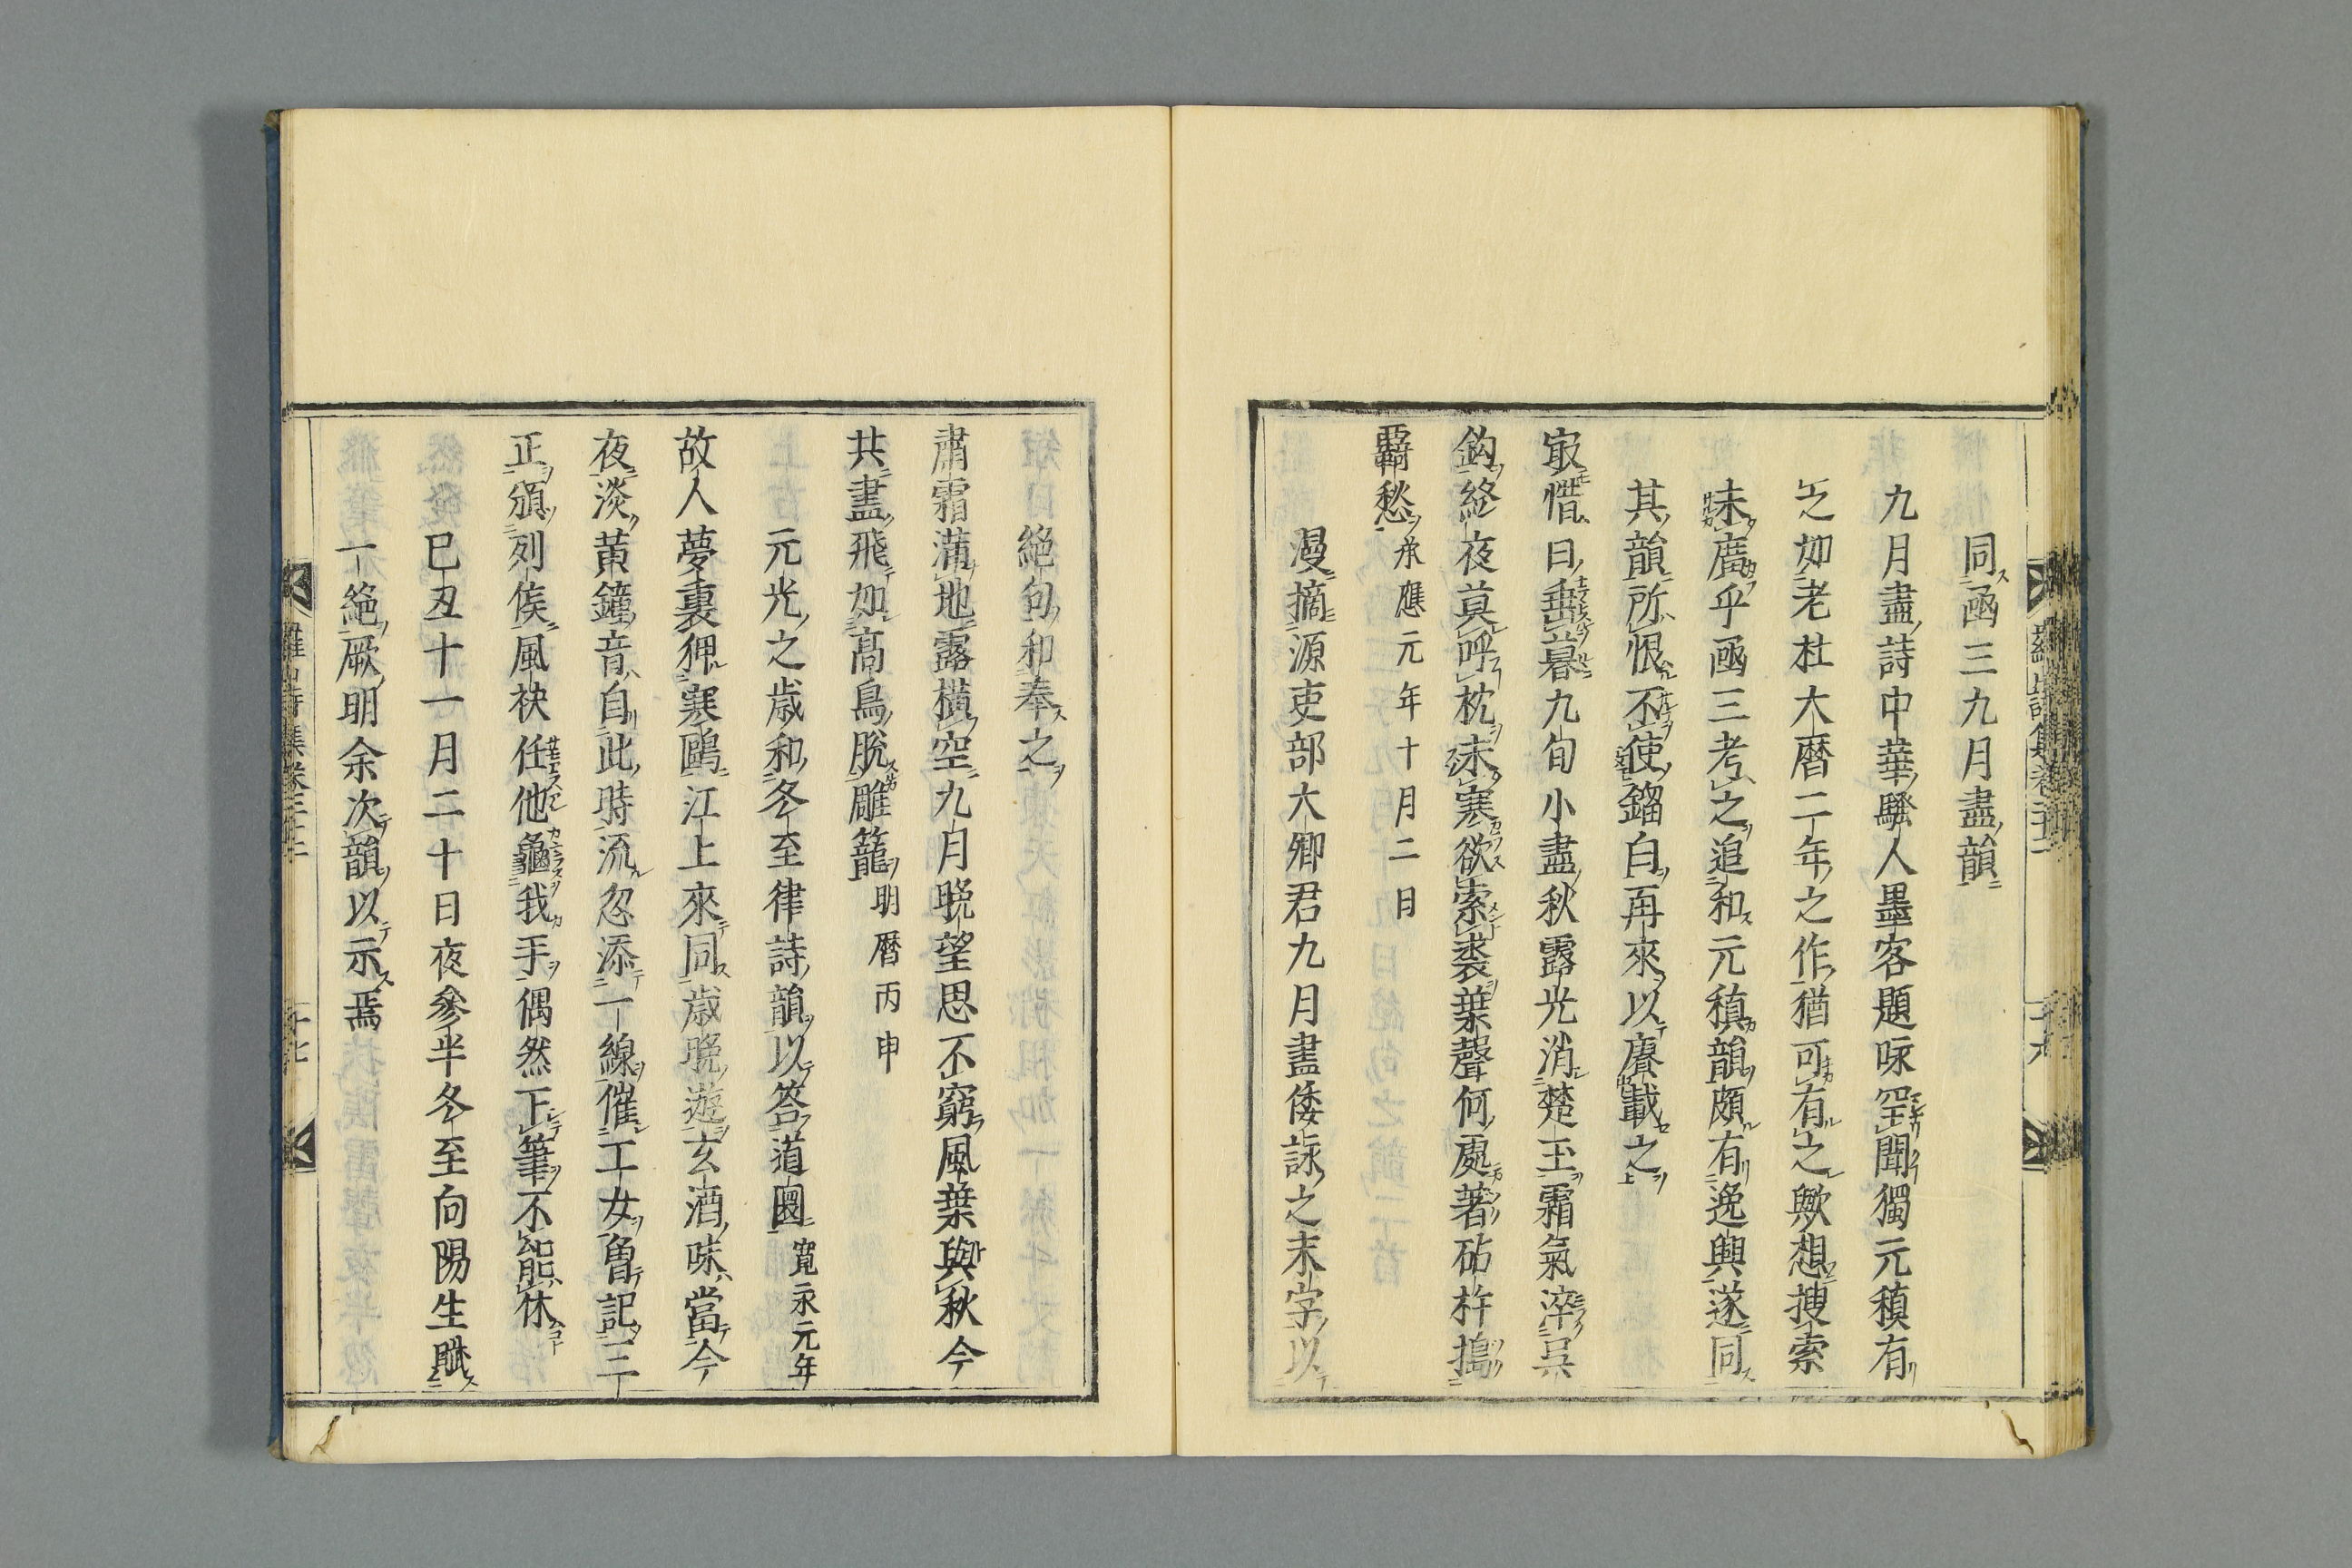 同函三九月盡韻
九月盡詩中華騷人墨客題咏罕聞獨元稹有
之如老杜大曆二年之作猶可有之歟想搜索
未廣乎函三考之追和元稹韻頗有逸興遂同
其韻所恨不使鎦白再來以賡載之
最惜日垂暮九旬小盡秋露光消楚玉霜氣淬吳
鈎終夜莫呼枕未寒欲索裘葉聲何處著砧杵搗
羇愁 承應元年十月二日
漫摘源吏部大卿君九月盡倭詠之末字以
絕句和奉之
肅霜滿地露橫空九月晚望思不窮風葉與秋今
共盡飛如髙鳥脫雕籠 明曆丙申
元光之歲和冬至律詩韻以答道圓 寬永元年
故人夢裏狎寒鷗江上來同歲晚遊玄酒味當今
夜淡黃鐘音自此時流忽添一線催工女魯記三
正頒列侯風袂任他龜我手偶然下筆不能休
己丑十一月二十日夜參半冬至向陽生賦
一絕厥明余次韻以示焉
羅山詩集卷三十二